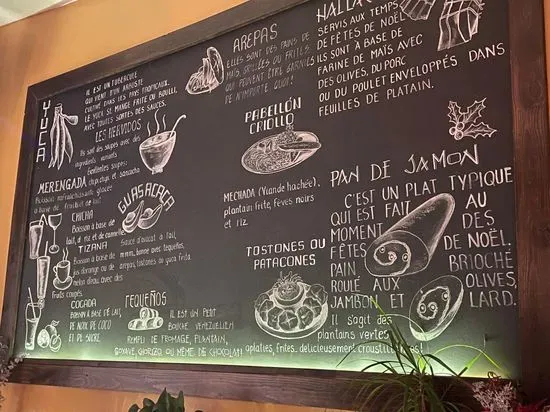 YUCCA
IL EST UN TUBERCULE
QUI VIENT D'UN ARBUSTE
CULTIVÉ DANS LES PAYS TROPICAUX.
LE YUCA SE MANGE FRITE OU BOULLI,
AVEC TOUTES SORTES DES SAUCES.
LES HERVIDOS
Ils sont des soupes avec des
ingredients variants
Excellentes soupes:
chipichipi et sancocho
MERENGADA
Boisson rafraichissante glacée
à base de fruits et de lait
CHICHA
Boisson à base de
lait, de riz et de cannelle
TIZANA
Boisson à base de
jus d'orange ou de
melon avec des
fruits coupés.
COCADA
BOISSON À BASE DE LAIT,
DE NOIX DE COCO
ET DE SUCRE
GUASACACA
Sauce d'avocat à l'ail,
mmm, bonne avec tequeños,
arepas, tostones ou yuca frita.
TEQUEÑOS
IL EST UN PETIT
BOUCHE VENEZUELIEN
REMPLI DE FROMAGE, PLANTAIN,
GOYAVE, CHORIZO OU MÊME DE CHOCOLAT!
AREPAS
ELLES SONT DES PAINS DE
MAÏS, GRILLÉES OU FRITES.
QUI PEUVENT ÊTRE GARNIES
DE N'IMPORTE QUOI!
PABELLÓN
CRIOLLO
MECHADA (Viande hachée),
plantain frite, fèves noirs
et riz.
TOSTONES OU
PATACONES
Il s'agit des
plantains vertes
aplaties, frites, delicieusement croustillantes!
HALLACAS
SERVIS AUX TEMPS
DE FÊTES DE NOËL
ILS SONT À BASE DE
FARINE DE MAÏS AVEC
DES OLIVES, DU PORC
OU DU POULET ENVELOPPÉS DANS
FEUILLES DE PLATAIN.
PAN DE JAMON
C'EST UN PLAT TYPIQUE
QUI EST FAIT AU
MOMENT DES
FÊTES DE NOËL.
PAIN BRIOCHÉ
ROULÉ AUX OLIVES,
JAMBON ET LARD.